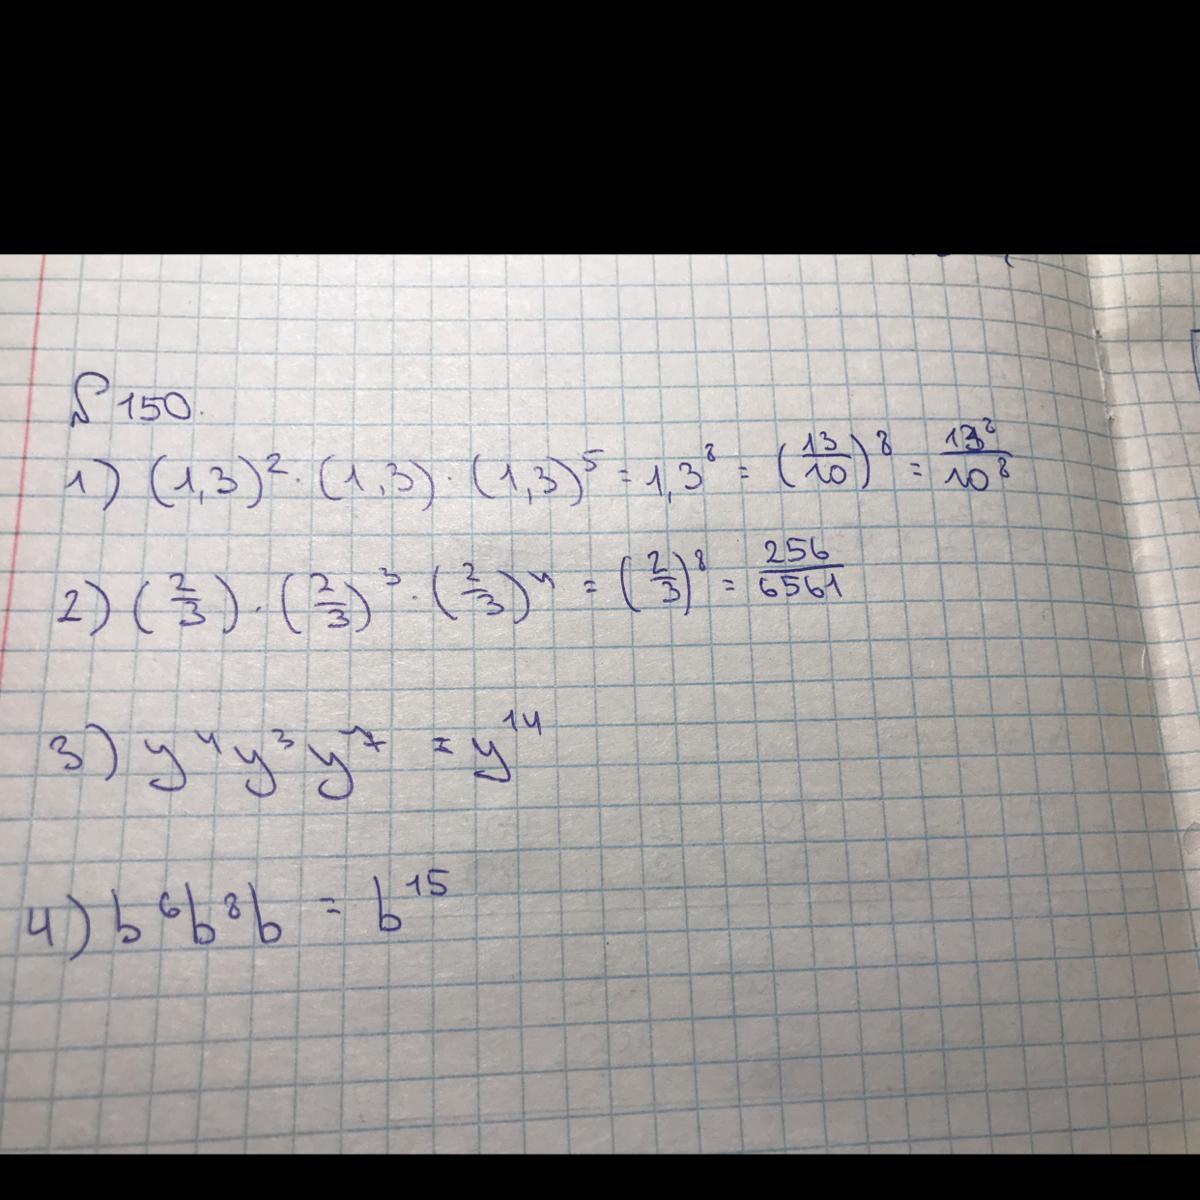 № 150.
1) (1,3)² · (1,3) · (1,3)⁵ = 1,3⁸ = (13/10)⁸ = 13⁸/10⁸
2) (2/3) · (2/3)³ · (2/3)⁴ = (2/3)⁸ = 256/6561
3) y⁴y³y⁷ = y¹⁴
4) b⁶b⁸b = b¹⁵